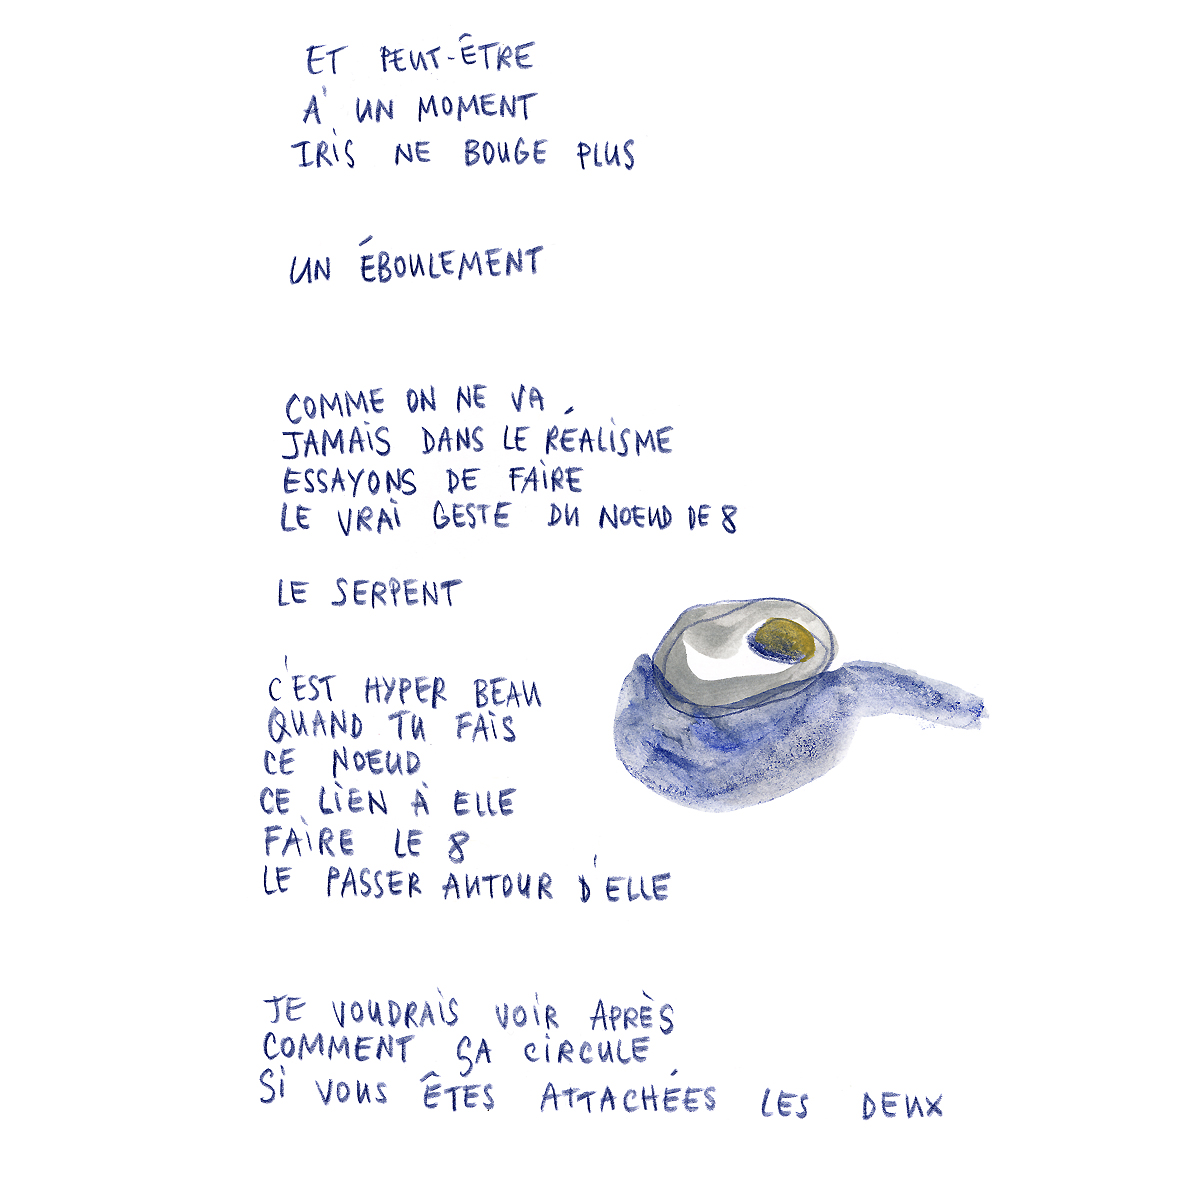 ET PEUT-ÊTRE
À UN MOMENT
IRIS NE BOUGE PLUS
UN ÉBOULEMENT
COMME ON NE VA
JAMAIS DANS LE RÉALISME
ESSAYONS DE FAIRE
LE VRAI GESTE DU NOEUD DE 8
LE SERPENT
C'EST HYPER BEAU
QUAND TU FAIS
CE NOEUD
CE LIEN À ELLE
FAIRE LE 8
LE PASSER AUTOUR D'ELLE
JE VOUDRAIS VOIR APRÈS
COMMENT ÇA CIRCULE
SI VOUS ÊTES ATTACHÉES LES DEUX